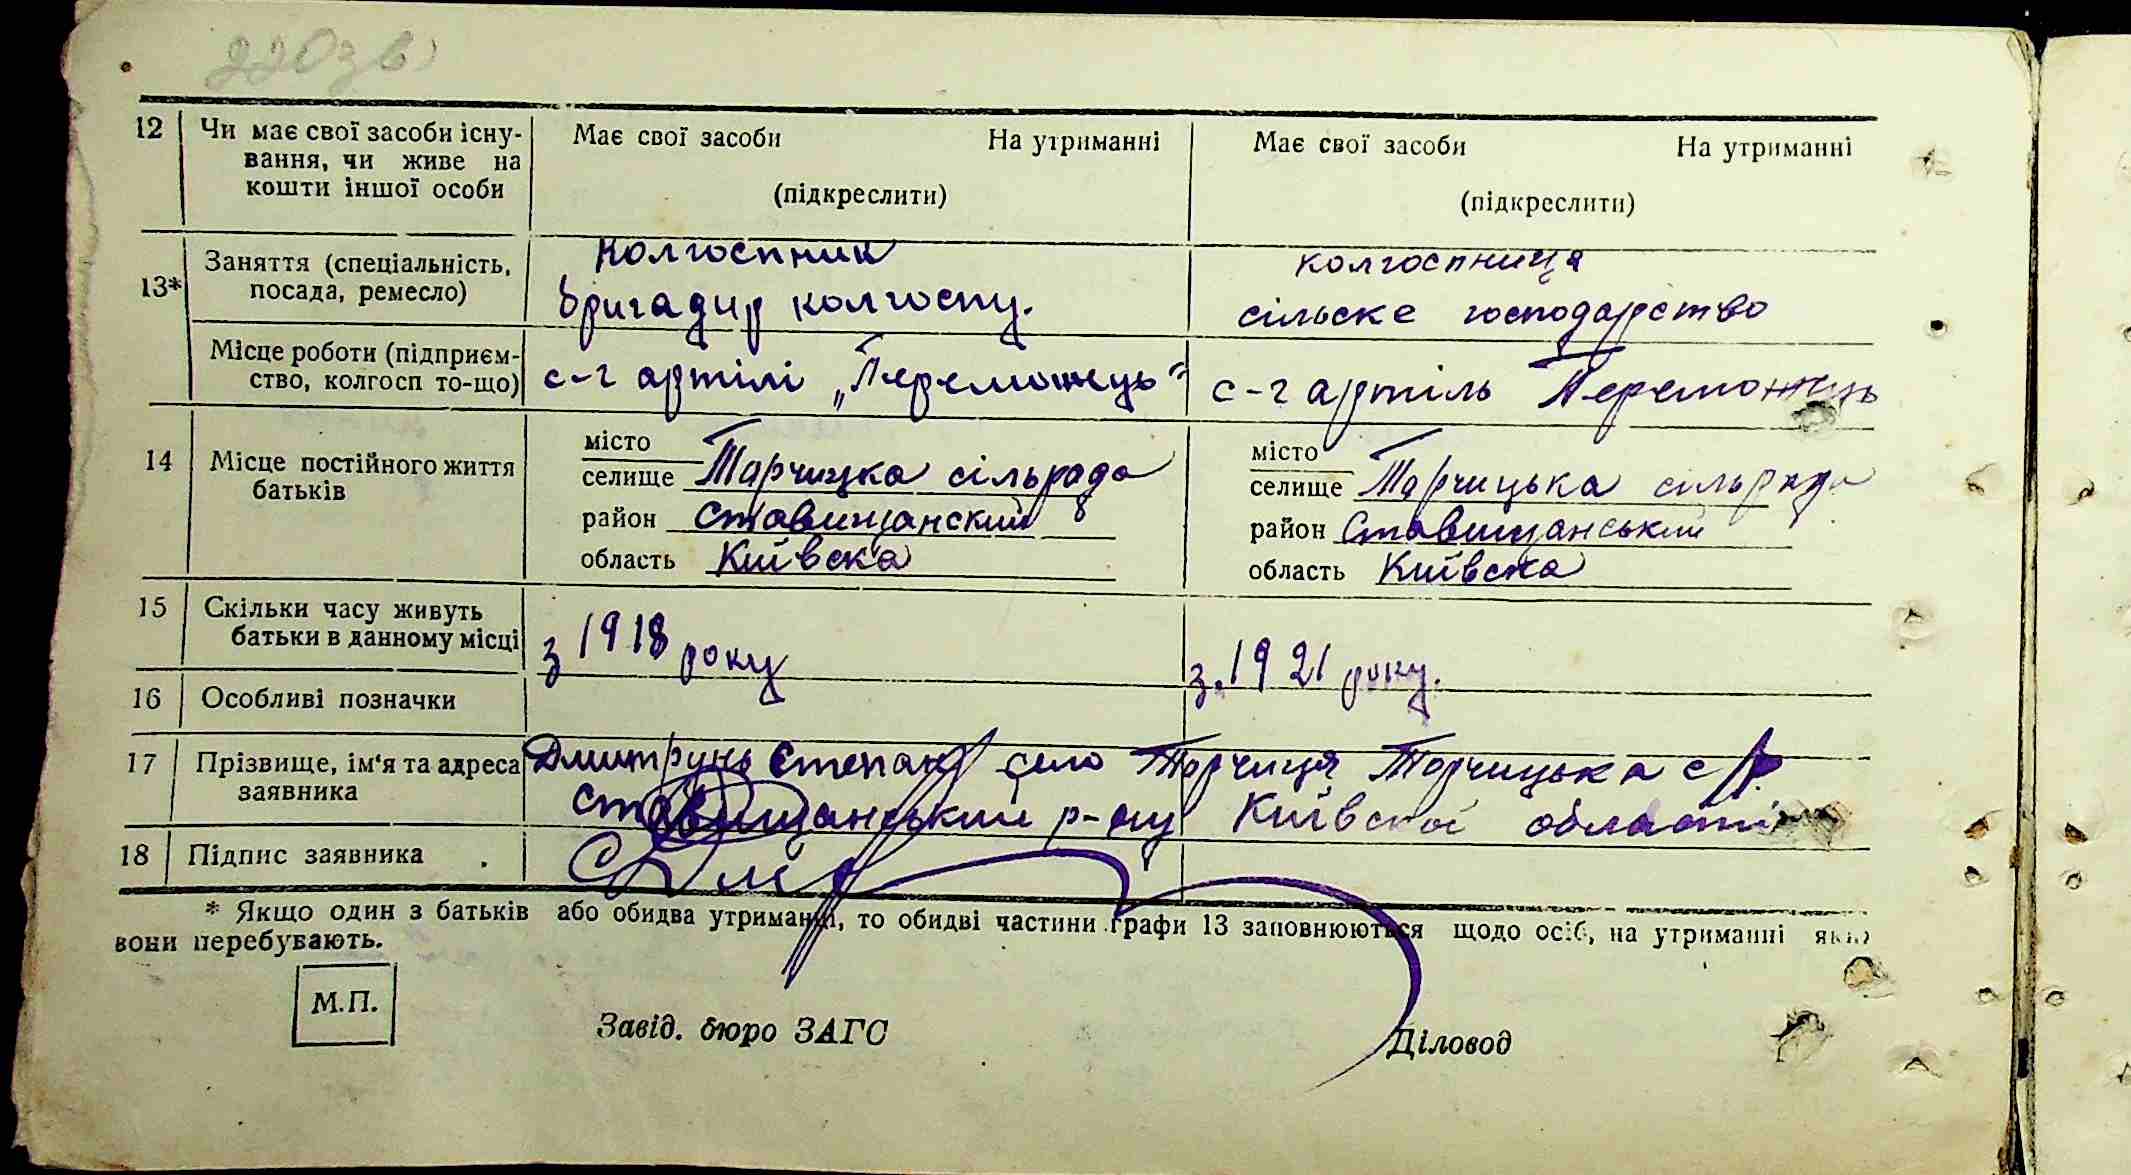 220зв
12 Чи має свої засоби існу- Має свої засоби На утриманні Має свої засоби На утриманні
вання, чи живе на
кошти іншої особи (підкреслити) (підкреслити)
Колгоспник колгоспниця
13* Заняття (спеціальність,
посада, ремесло) бригадир колгоспу. сільске господарство
Місце роботи (підприєм-
ство, колгосп то-що) с-г артілі „Переможець" с-г артіль Переможець
місто місто
14 Місце постійного життя селище Тарчицка сільрада селище Тарчицька сільрада
батьків район Ставищанский район Ставищанський
область Київска область Київска
15 Скільки часу живуть
батьки в данному місці з 1918 року з. 1921 року.
16 Особливі позначки
17 Прізвище, ім'я та адреса Дмитрунь Степан село Торчиця Торчицька с/р.
заявника Ставищанський р-ну Київскої області
18 Підпис заявника .
* Якщо один з батьків або обидва утриманці, то обидві частини графи 13 заповнюються щодо осіб, на утриманні яких
вони перебувають.
М.П.
Завід. бюро ЗАГС Діловод